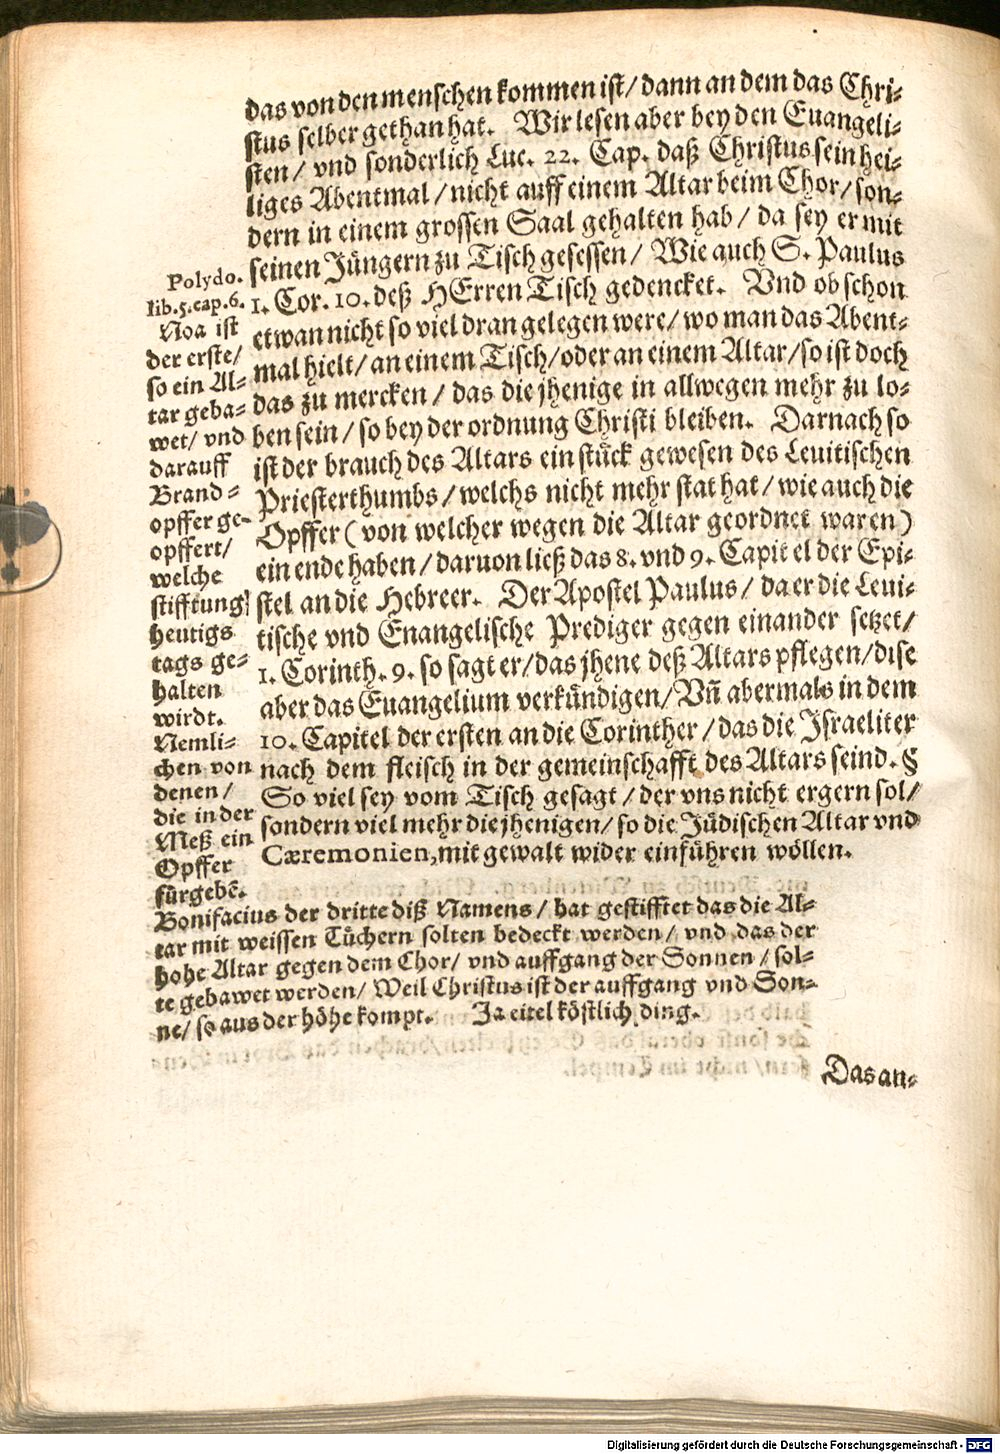 das von den menschen kommen ist/ dann an dem das Chri⸗
stus selber gethan hat. Wir lesen aber bey den Euangeli⸗
sten/ vnd sonderlich Luc. 22. Cap. daß Christus sein hei⸗
liges Abentmal/ nicht auff einem Altar beim Chor/ son⸗
dern in einem grossen Saal gehalten hab/ da sey er mit
seinen Jüngern zu Tisch gesessen/ Wie auch S. Paulus
1. Cor. 10. deß HErren Tisch gedencket. Vnd ob schon
etwan nicht so viel dran gelegen were/ wo man das Abent⸗
mal hielt/ an einem Tisch/ oder an einem Altar/ so ist doch
das zu mercken/ das die jhenige in allwegen mehr zu lo⸗
ben sein/ so bey der ordnung Christi bleiben. Darnach so
ist der brauch des Altars ein stück gewesen des Leuitischen
Priesterthumbs/ welchs nicht mehr stat hat/ wie auch die
Opffer (von welcher wegen die Altar geordnet waren)
ein ende haben/ daruon ließ das 8. vnd 9. Capitel der Epi⸗
stel an die Hebreer. Der Apostel Paulus/ da er die Leui⸗
tische vnd Enangelische Prediger gegen einander setzet/
1. Corinth. 9. so sagt er/ das jhene deß Altars pflegen/ dise
aber das Euangelium verkündigen/ Vñ abermals in dem
10. Capitel der ersten an die Corinther/ das die Israeliter
nach dem fleisch in der gemeinschafft des Altars seind. §
So viel sey vom Tisch gesagt/ der vns nicht ergern sol/
sondern viel mehr die jhenigen/ so die Jüdischen Altar vnd
Cæremonien, mit gewalt wider einführen wöllen.
Polydo.
lib. 5. cap. 6.
Noa ist
der erste/
so ein Al⸗
tar geba⸗
wet/ vnd
darauff
Brand⸗
opffer ge⸗
opffert/
welche
stifftung
heutigs
tags ge⸗
halten
wirdt.
Nemli⸗
chen von
denen/
die in der
Meß ein
Opffer
fürgebẽ.
Bonifacius der dritte diß Namens/ hat gestifftet das die Al⸗
tar mit weissen Tüchern solten bedeckt werden/ vnd das der
hohe Altar gegen dem Chor/ vnd auffgang der Sonnen/ sol⸗
te gebawet werden/ Weil Christus ist der auffgang vnd Son⸗
ne/ so aus der höhe kompt. Ja eitel köstlich ding.
Das an⸗
Digitalisierung gefördert durch die Deutsche Forschungsgemeinschaft - DFG